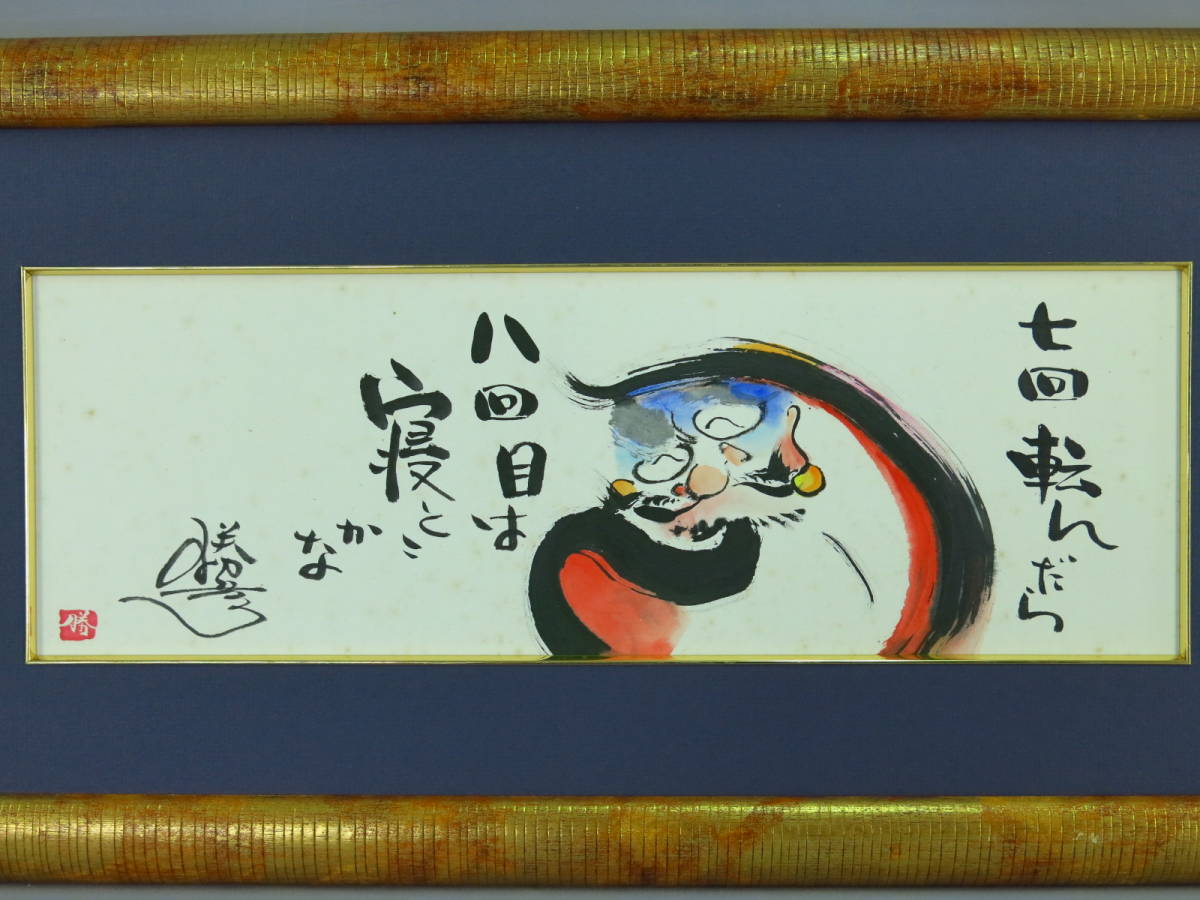 七回転んだら
八回目は
寝とこ
かな
勝